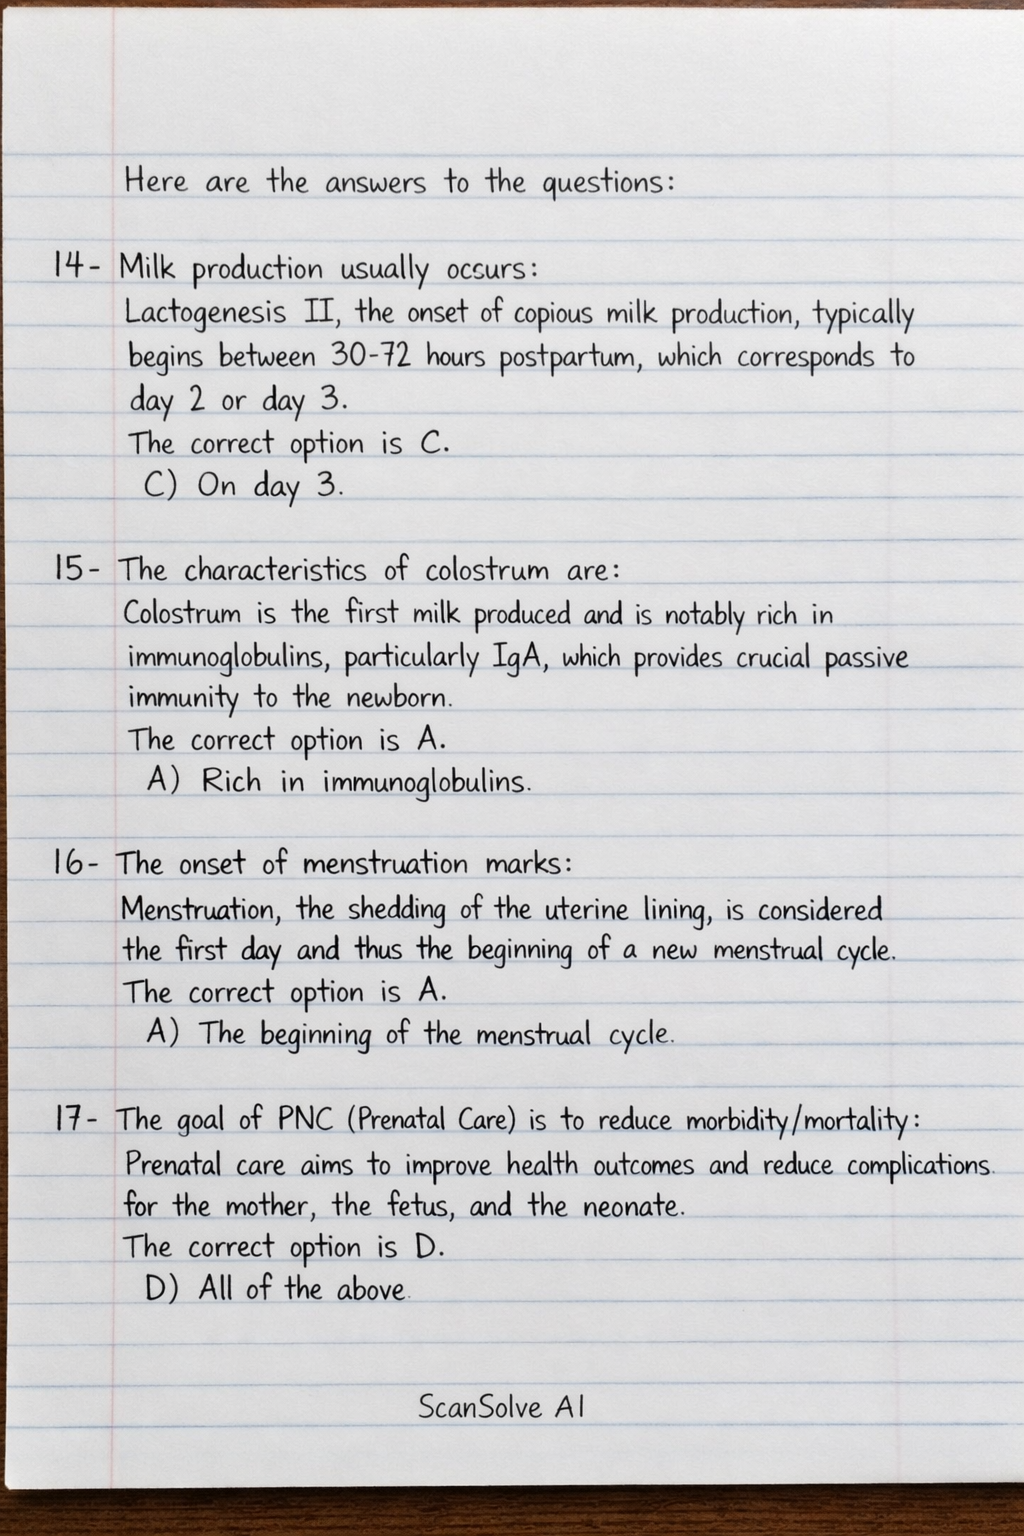 Here are the answers to the questions:
14- Milk production usually occurs:
Lactogenesis II, the onset of copious milk production, typically
begins between 30-72 hours postpartum, which corresponds to
day 2 or day 3.
The correct option is C.
C) On day 3.
15- The characteristics of colostrum are:
Colostrum is the first milk produced and is notably rich in
immunoglobulins, particularly IgA, which provides crucial passive
immunity to the newborn.
The correct option is A.
A) Rich in immunoglobulins.
16- The onset of menstruation marks:
Menstruation, the shedding of the uterine lining, is considered
the first day and thus the beginning of a new menstrual cycle.
The correct option is A.
A) The beginning of the menstrual cycle.
17- The goal of PNC (Prenatal Care) is to reduce morbidity/mortality:
Prenatal care aims to improve health outcomes and reduce complications.
for the mother, the fetus, and the neonate.
The correct option is D.
D) All of the above.
ScanSolve AI